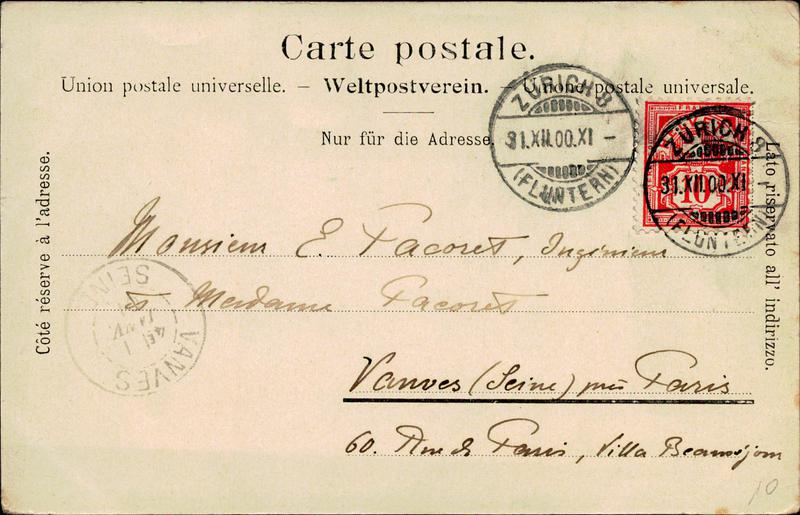 Carte postale.
Union postale universelle. – Weltpostverein. – Unione postale universale.
Nur für die Adresse.
Côté réservé à l'adresse.
Lato riservato all' indirizzo.
ZÜRICH 8
31.XII.00.XI –
(FLUNTERN)
FRA
10
ZÜRICH 8
31.XII.00.XI
(FLUNTERN)
Monsieur E. Pacoret, Ingénieur
et Madame Pacoret
Vanves (Seine) près Paris
60. Rue de Paris, Villa Beauséjour
VANVES
1
JANV
SEINE
10